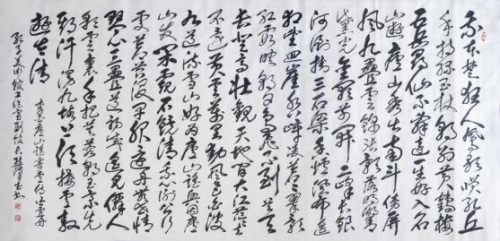 我本楚狂人鳳歌笑孔丘
手持綠玉杖朝別黃鶴樓
五岳尋仙不辭遠一生好入名
山遊廬山秀出南斗傍屏
風九疊雲錦張影落明湖青
黛光金闕前開二峰長銀
河倒挂三石梁香爐瀑布遙
相望迴崖沓嶂凌蒼蒼翠影
紅霞映朝日鳥飛不到吳天
長登高壯觀天地間大江茫茫去
不還黃雲萬里動風色白波
九道流雪山好為廬山謠興因廬
山發閑窺石鏡清我心謝公行
處蒼苔沒早服還丹無世情
琴心三疊道初成遙見僊人
彩雲裏手把芙蓉朝玉京先
期汗漫九垓上願接盧敖
遊太清
李白廬山謠寄盧侍御虛舟